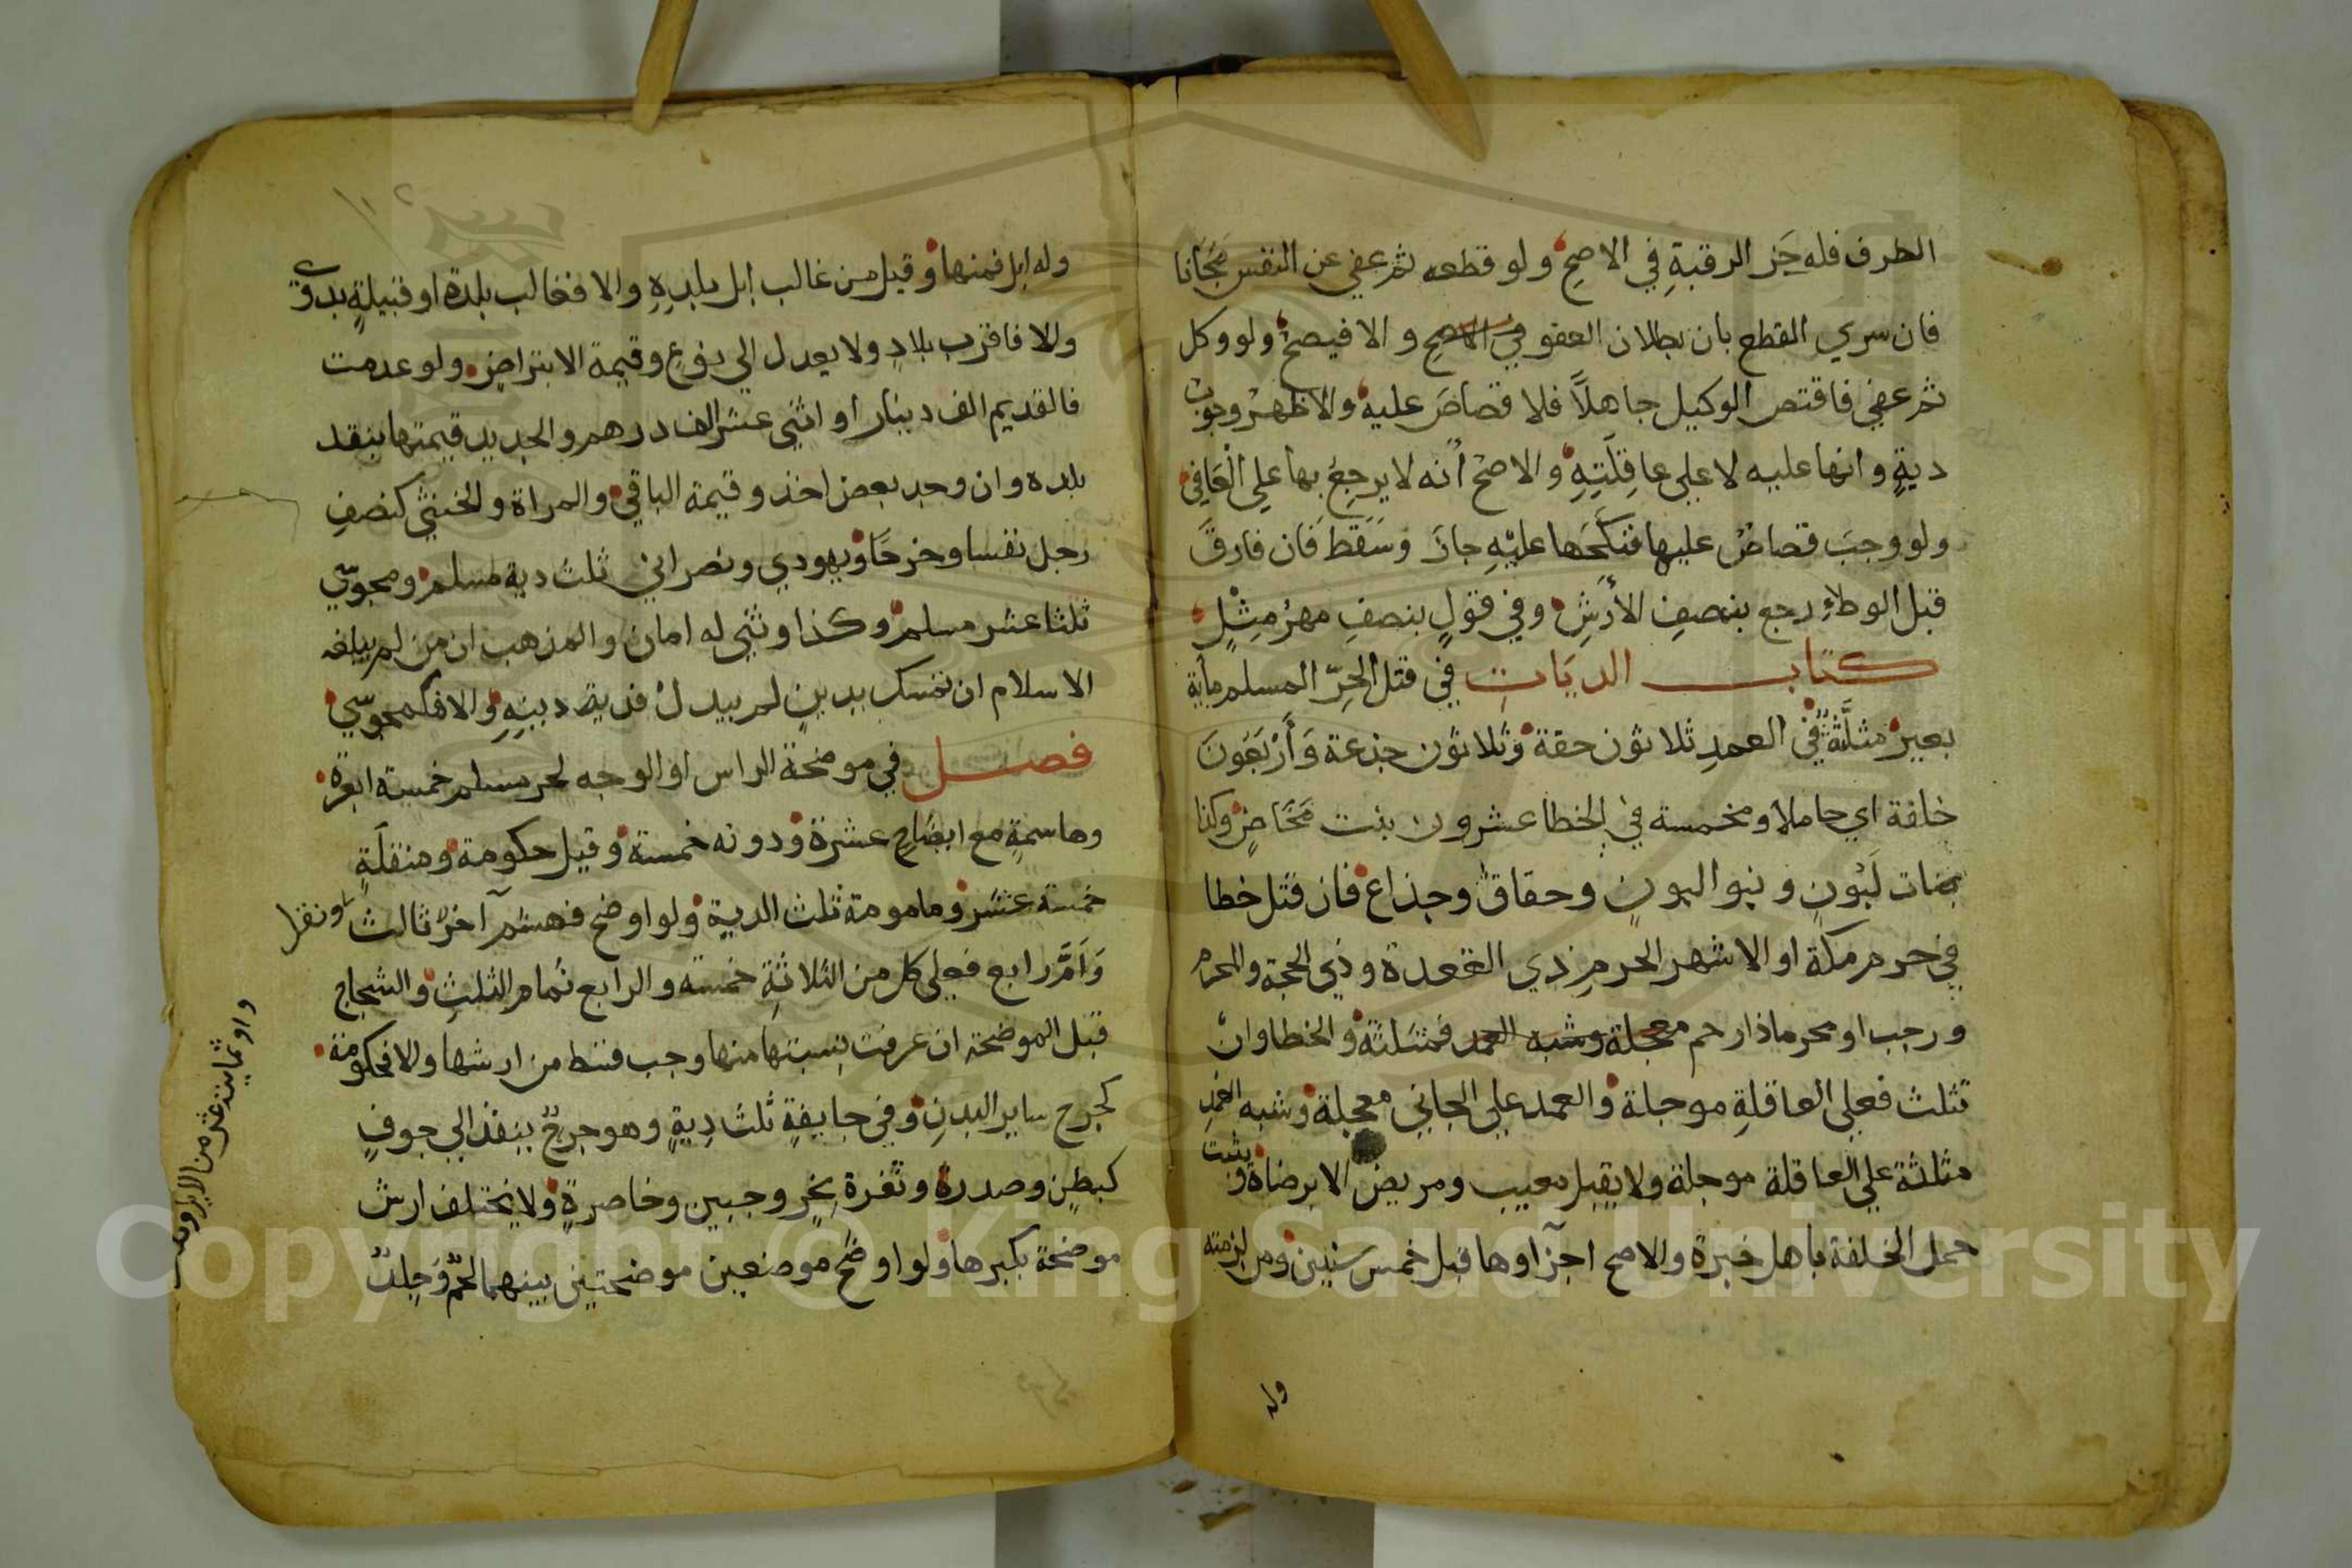 الطرف فله جَز الرقبةِ في الاصحِ ولو قطعه ثم عفي عن النفس مَجَّانا
فان سري القطع بان بطلان العفو في الاصح والا فيصحُ ولو وكل
ثم عفي فاقتص الوكيل جاهلاً فلا قصاصَ عليه والاظهرُ وجوب
ديةٍ وانها عليه لا علي عاقِلَتِهِ والاصحُ أنه لا يرجعُ بها علي الْعَافِي
ولو وجبَ قصاصُ عليها فنَكَحَها عليْهِ جازَ وسَقَطَ فان فارقَ
قبل الوطاءِ رجع بنصفِ الأرشِ وفي قولٍ بنصفِ مهرُ مِثْلٍ
كتاب الديَاتِ في قتل الحرِّ المسلم ماية
بعيرٍ مثلَّثةٌ في العمدِ ثلاثون حقة وثلاثون جذعة وَأَرْبَعَونَ
خلفة اي حاملا ومخمسة في الخطا عشرون بنت مَخَاضٍ وكذا
بنات لَبُونٍ وبنو البونٍ وحقاقٌ وجذاع فان قتل خطا
في حرم مكة او الاشهر الحرمِ ذي القعدة وذي الحجة والمحرم
ورجب او محرما ذا رحم معجلة وشبه العمد فمثلثة والخطا وانْ
تثلث فعلي العاقلةِ موجلة والعمد علي الجاني معجلة وشبه العمدِ
مثلثة علي العاقلة موجلة ولا يقبل معيب ومريض الا برضاه ويثبت
حمل الخلفة باهل خبرة والاصح اجزآوها قبل خمس سنين ومن لزمته
وله
وله ابل فمنها وقيل من غالب ابل بلدِهِ والا فغالب بلدة او قبيلةٍ بدوي
والا فاقرب بلادٍ ولا يعدل الي نوعٍ وقيمة الا بتراضٍ ولو عدمت
فالقديم الف دينار او اثني عشر الف درهم والجديد قيمتها بنقد
بلده وان وجد بعض اخذ وقيمة الباقي والمراة والخنثي كنصفِ
رجل نفسا وجرحًا ويهودي ونصراني ثلث دية مسلم ومجوسّي
ثلثا عشر مسلم وكذا وثني له امان والمذهب ان من لم يبلغه
الاسلام ان تمسك بدينٍ لم يبدلْ فدية دينِهِ والا فكمجوسّي
فصل في موضحة الراس او الوجه لحر مسلم خمسة ابعرة
وهاسمةٍ مع ايضَاحٍ عشرة ودونه خمسة وقيل حكومة ومنقلَةٍ
خمسة عشر ومامومة ثلث الدية ولو اوضح فهشم آخرُ ثالث ونقل
وَأَمَّ رابع فعلي كل من الثلاثةِ خمسه والرابع تمام الثلثِ والشجاج
قبل الموضحة ان عرفت نسبتها منها وجب قسط من ارشها والا فحكومة
كجرح ساير البدنِ وفي جايفةٍ ثلث دِيةٍ وهو جرحٌ ينفذ الي جوفٍ
كبطنٍ وصدرة وثغرة نحرٍ وجبين وخاصرةٍ ولا يختلف ارش
موضحة بكبرها ولو اوضَح موضعين موضحتين بينهما لحمٌ وَجِلدٌ
Copyright © King Saud University